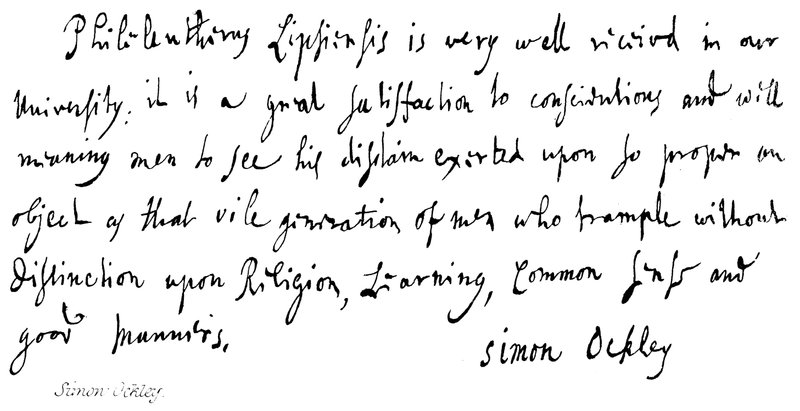 Phileleutherus Lipsiensis is very well receivd in our
University; it is a great satisfaction to conscientious and well
meaning men to see his disdain exerted upon so proper an
object as that vile generation of men who trample without
Distinction upon Religion, Learning, Common Sense and
good Manners.
Simon Ockley
Simon Ockley.